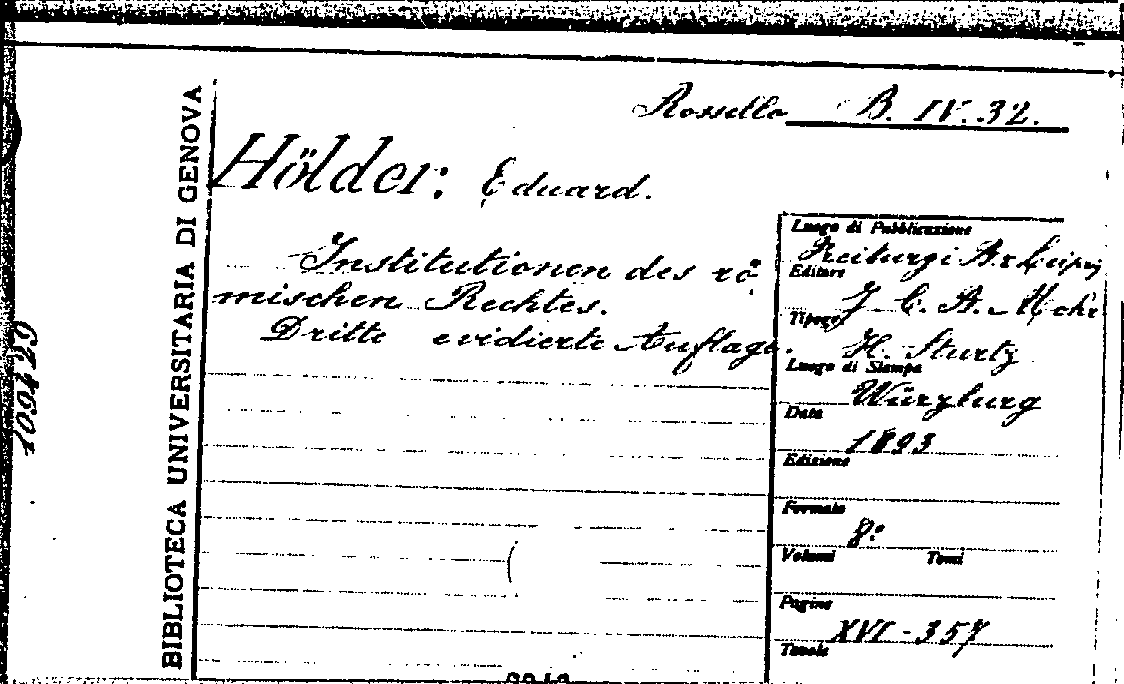 Rossello B. IV. 32.
Hölder: Eduard.
Institutionen des rö
mischen Rechtes.
Dritte evidierte Auflage.
Luogo di Pubblicazione
Freiburg i B. e Leipzig
Editore
J. C. B. Mohr
Tipogr.
H. Sturtz
Luogo di Stampa
Würzburg
Data
1893
Edizione
Formato
8:
Volumi Tomi
Pagine
XVI - 357
Tavole
BIBLIOTECA UNIVERSITARIA DI GENOVA
109429